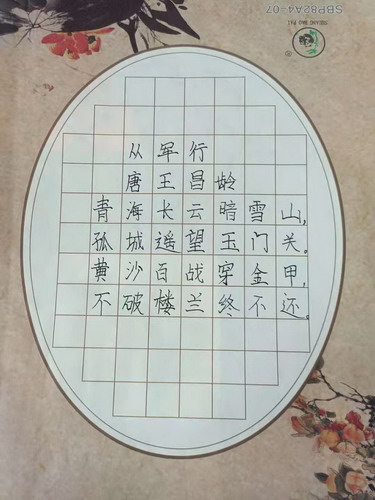 SBP82A4-07
从军行
唐王昌龄
青海长云暗雪山，
孤城遥望玉门关。
黄沙百战穿金甲，
不破楼兰终不还。